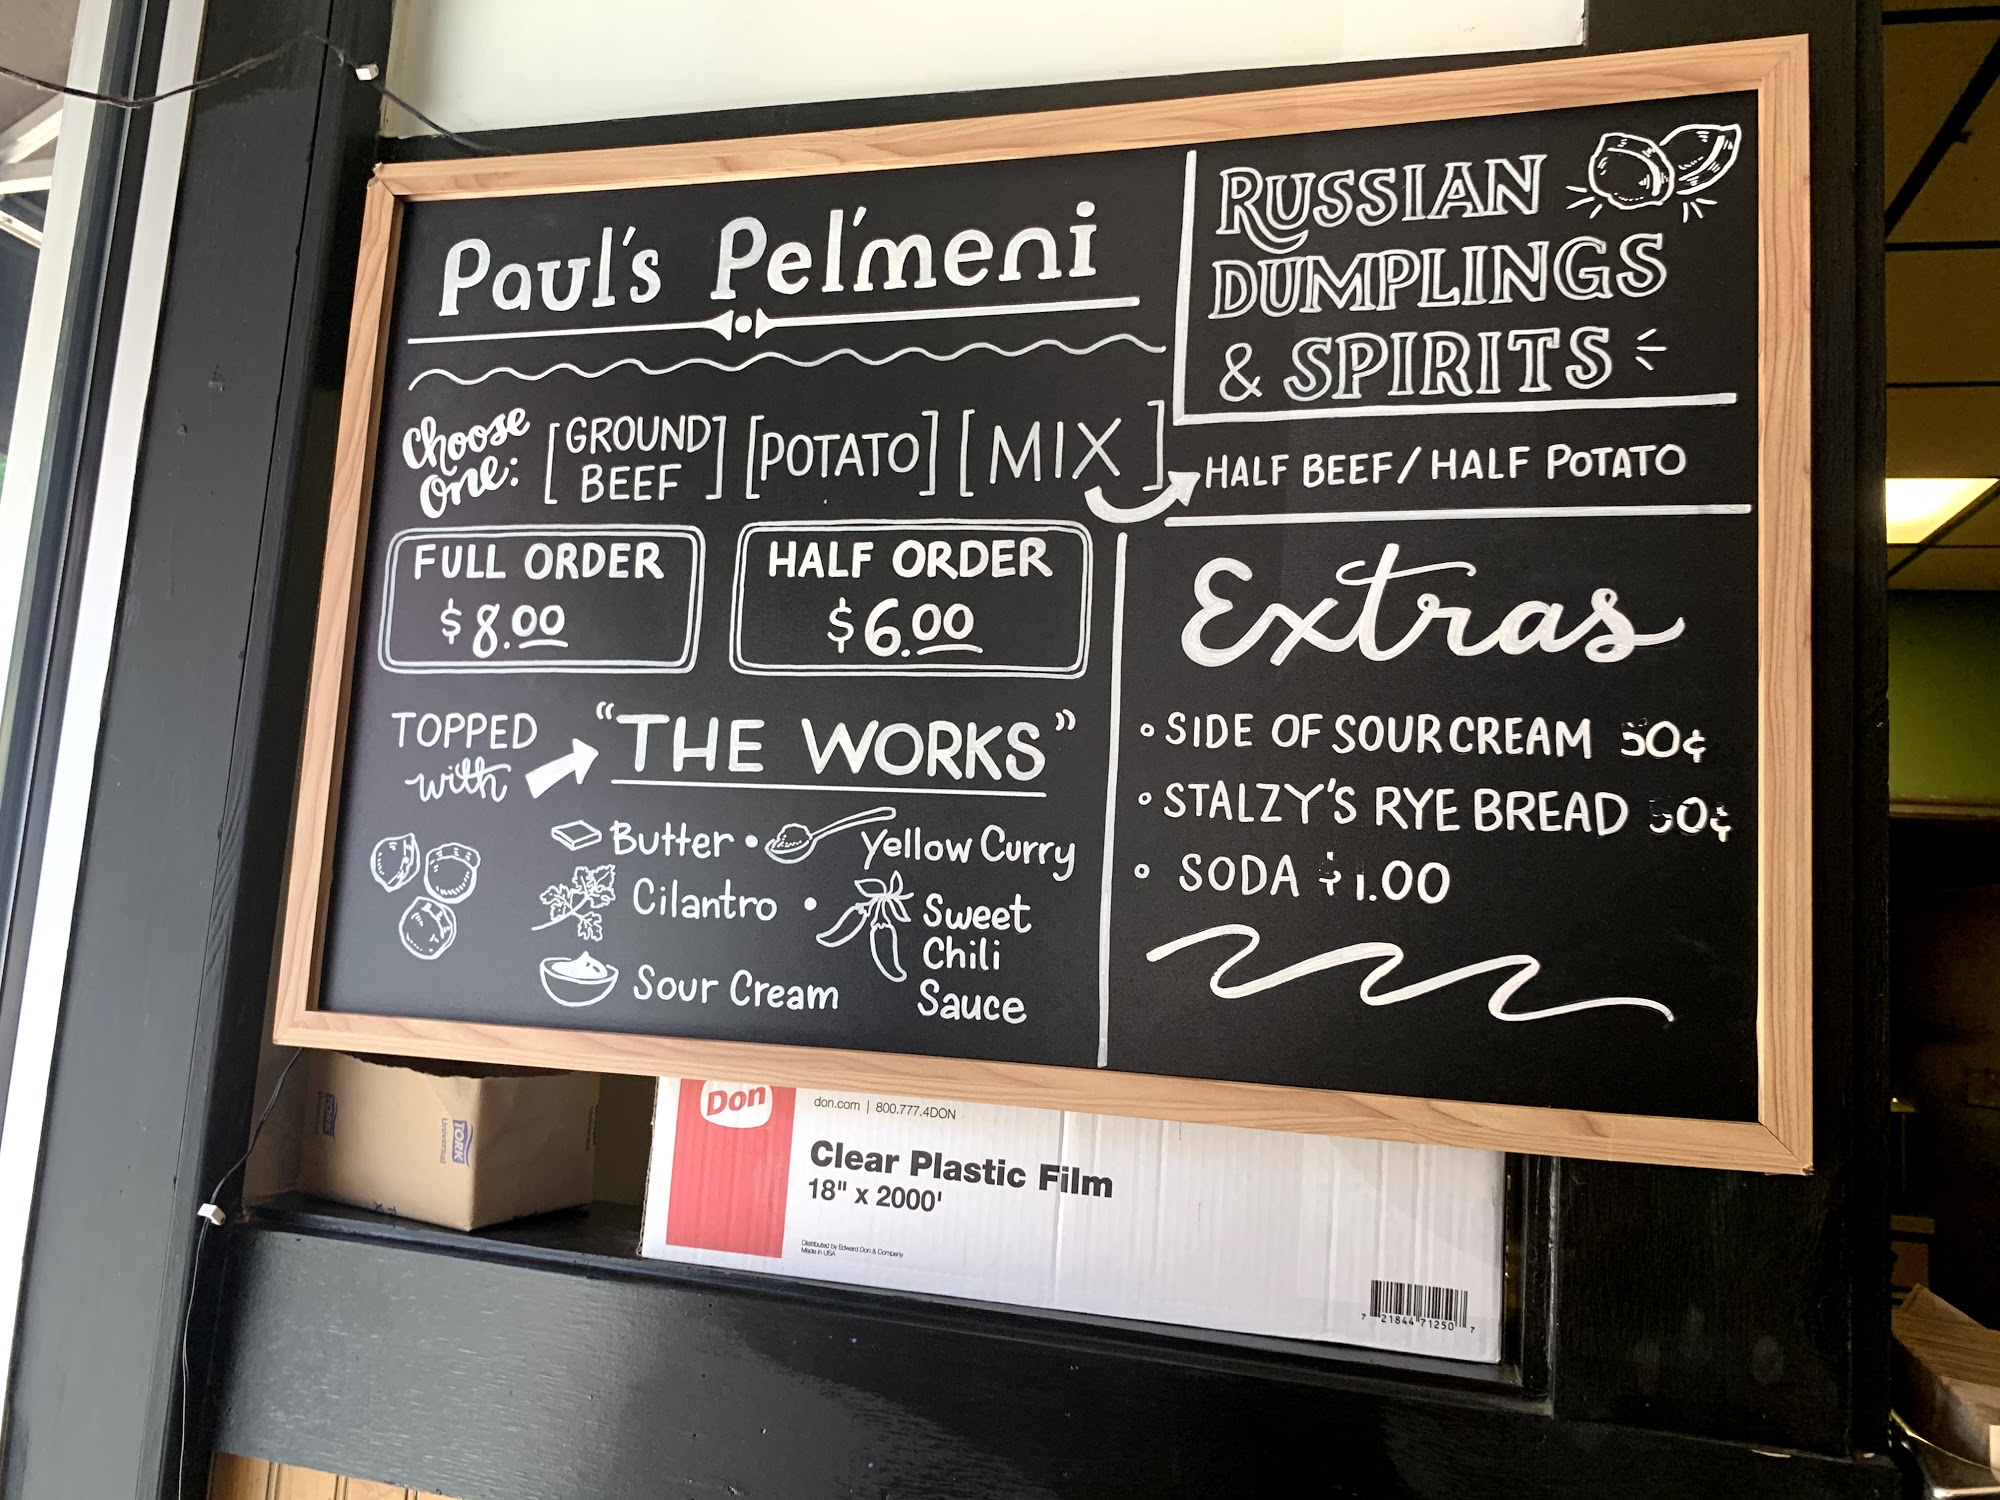 Paul's Pel'meni
RUSSIAN
DUMPLINGS
& SPIRITS
Choose
One:
[GROUND
BEEF]
[POTATO]
[MIX]
HALF BEEF/HALF POTATO
FULL ORDER
$8.00
HALF ORDER
$6.00
TOPPED
with
"THE WORKS"
Butter • Yellow Curry
Cilantro • Sweet
Chili
Sauce
Sour Cream
Extras
• SIDE OF SOUR CREAM 50¢
• STALZY'S RYE BREAD 50¢
• SODA $1.00
TORK
Universal
Don
don.com | 800.777.4DON
Clear Plastic Film
18" x 2000'
Distributed by Edward Don & Company
Made in USA
7 21844 71250 7